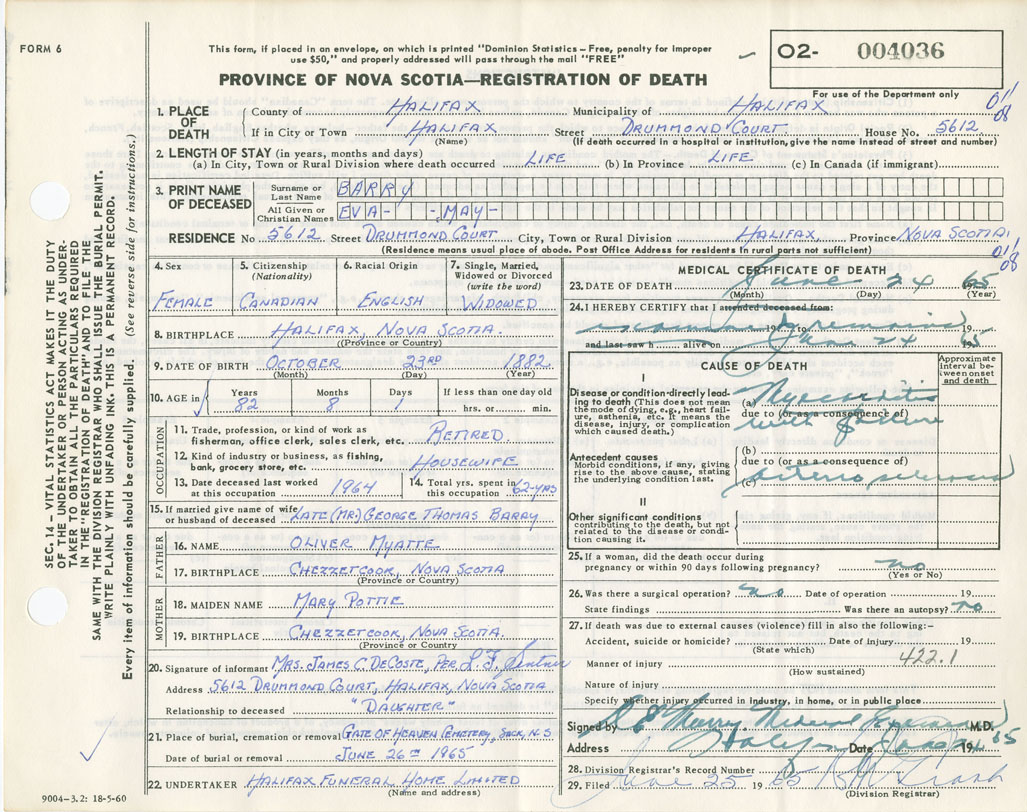 FORM 6
This form, if placed in an envelope, on which is printed "Dominion Statistics – Free, penalty for improper
use $50," and properly addressed will pass through the mail "FREE"
PROVINCE OF NOVA SCOTIA—REGISTRATION OF DEATH
02- 004036
For use of the Department only
1. PLACE OF DEATH County of HALIFAX Municipality of HALIFAX
If in City or Town HALIFAX Street DRUMMOND COURT House No. 5612
(Name) (If death occurred in a hospital or institution, give the name instead of street and number)
2. LENGTH OF STAY (in years, months and days)
(a) In City, Town or Rural Division where death occurred LIFE (b) In Province LIFE (c) In Canada (if immigrant)
3. PRINT NAME OF DECEASED Surname or Last Name BARRY
All Given or Christian Names EVA- -MAY-
RESIDENCE No 5612 Street DRUMMOND COURT City, Town or Rural Division HALIFAX, Province NOVA SCOTIA.
(Residence means usual place of abode. Post Office Address for residents in rural parts not sufficient)
011
08
011
08
SEC. 14 – VITAL STATISTICS ACT MAKES IT THE DUTY
OF THE UNDERTAKER OR PERSON ACTING AS UNDER-
TAKER TO OBTAIN ALL THE PARTICULARS REQUIRED
IN THE "REGISTRATION OF DEATH" AND TO FILE THE
SAME WITH THE DIVISION REGISTRAR WHO SHALL ISSUE THE BURIAL PERMIT.
WRITE PLAINLY WITH UNFADING INK. THIS IS A PERMANENT RECORD.
Every item of information should be carefully supplied. (See reverse side for instructions.)
4. Sex
FEMALE
5. Citizenship
(Nationality)
CANADIAN
6. Racial Origin
ENGLISH
7. Single, Married,
Widowed or Divorced
(write the word)
WIDOWED
8. BIRTHPLACE HALIFAX, NOVA SCOTIA.
(Province or Country)
9. DATE OF BIRTH OCTOBER 23RD 1882.
(Month) (Day) (Year)
10. AGE in Years 82 Months 8 Days 1 If less than one day old
hrs. or min.
OCCUPATION
11. Trade, profession, or kind of work as
fisherman, office clerk, sales clerk, etc. RETIRED
12. Kind of industry or business, as fishing,
bank, grocery store, etc. HOUSEWIFE
13. Date deceased last worked
at this occupation 1964
14. Total yrs. spent in
this occupation 62-YRS
15. If married give name of wife
or husband of deceased LATE (MR) GEORGE THOMAS BARRY
FATHER
16. NAME OLIVER MYATTE
17. BIRTHPLACE CHEZZETCOOK, NOVA SCOTIA
(Province or Country)
MOTHER
18. MAIDEN NAME MARY POTTIE
19. BIRTHPLACE CHEZZETCOOK, NOVA SCOTIA.
(Province or Country)
20. Signature of informant MRS. JAMES C. DECOSTE, PER L. F.
Address 5612 DRUMMOND COURT, HALIFAX, NOVA SCOTIA
Relationship to deceased "DAUGHTER"
21. Place of burial, cremation or removal GATE OF HEAVEN CEMETERY, SACK, N.S
Date of burial or removal JUNE 26TH 1965
22. UNDERTAKER HALIFAX FUNERAL HOME LIMITED
(Name and address)
9004-3.2: 18-5-60
MEDICAL CERTIFICATE OF DEATH
23. DATE OF DEATH June 24 65
(Month) (Day) (Year)
24. I HEREBY CERTIFY that I attended deceased from:
examined remains 19
and last saw h alive on June 24 65
CAUSE OF DEATH
Approximate
interval be-
tween onset
and death
I
Disease or condition directly lead-
ing to death (This does not mean
the mode of dying, e.g., heart failure,
asthenia, etc. It means the
disease, injury, or complication
which caused death.)
(a) Myocarditis
due to (or as a consequence of)
with failure
Antecedent causes
Morbid conditions, if any, giving
rise to the above cause, stating
the underlying condition last.
(b)
due to (or as a consequence of)
(c) arterio sclerosis
II
Other significant conditions
contributing to the death, but not
related to the disease or condi-
tion causing it.
25. If a woman, did the death occur during
pregnancy or within 90 days following pregnancy? no
(Yes or No)
26. Was there a surgical operation? no Date of operation 19
State findings Was there an autopsy? no
27. If death was due to external causes (violence) fill in also the following:-
Accident, suicide or homicide? Date of Injury 19
(State which)
422.1
Manner of injury
(How sustained)
Nature of injury
Specify whether injury occurred in industry, in home, or in public place
Signed by Murray Medical Examiner M.D.
Address Halifax Date 19 65
28. Division Registrar's Record Number
29. Filed June 25 19 65
(Division Registrar)